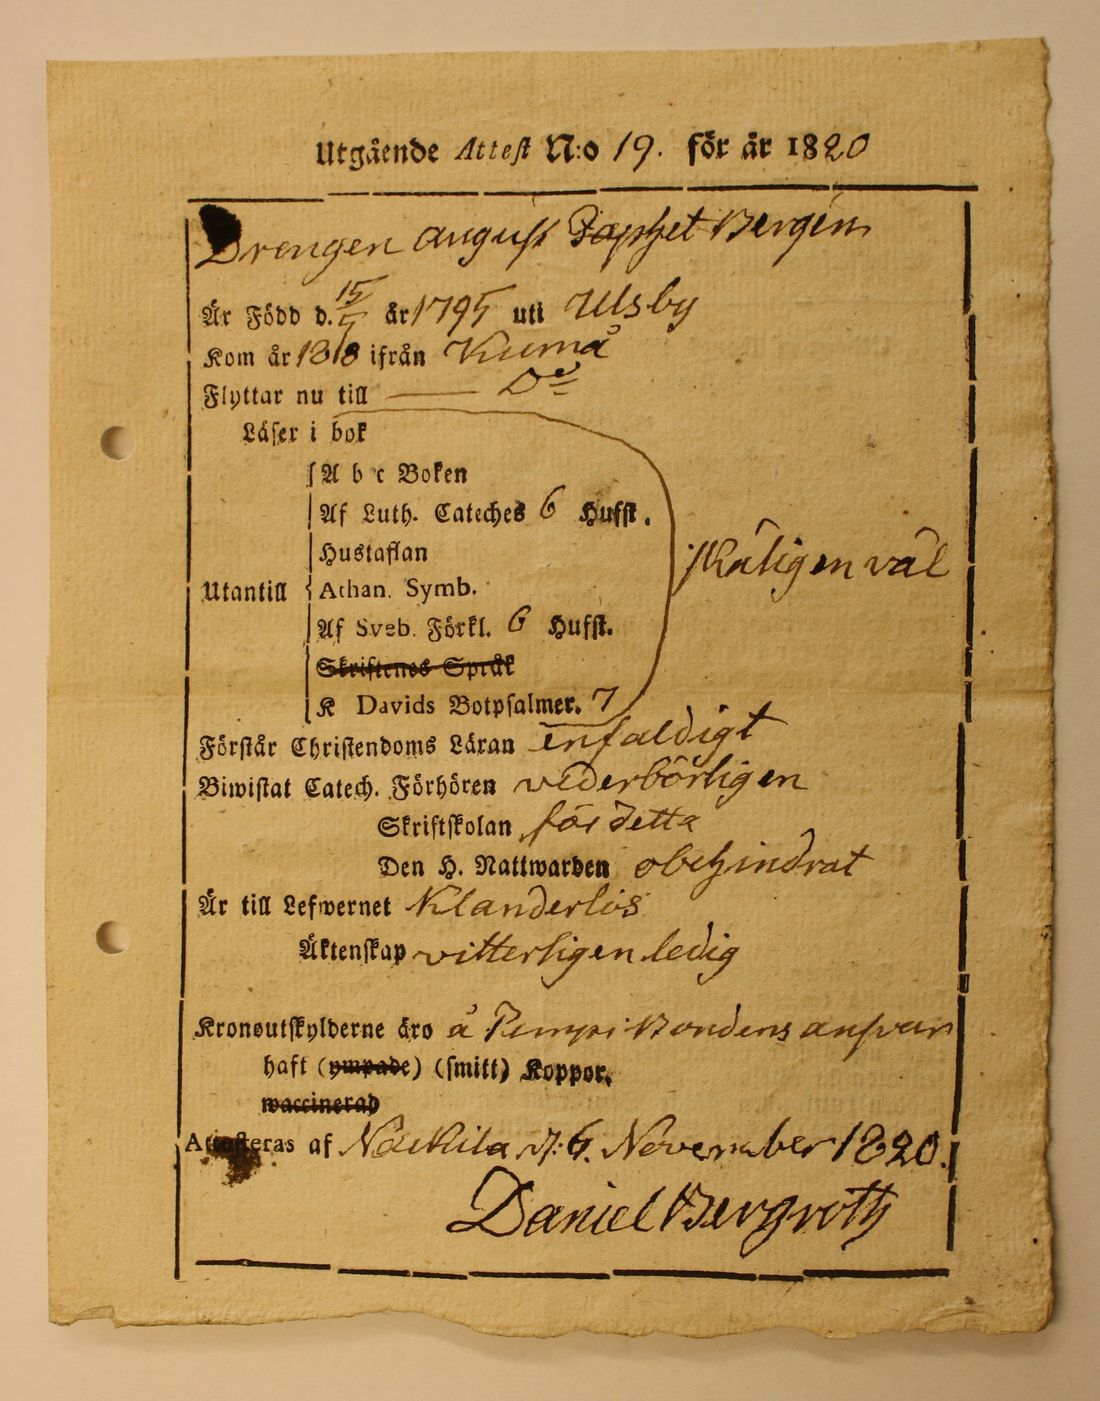 Utgående Attest N:o 19. för år 1820
Drengen August Japhet Bergén
Är Född d. 15/5 år 1795 uti Ulsby
Kom år 1818 ifrån Kumå
Flyttar nu till —— Do
Läser i bok
A b c Boken
Af Luth. Cateches 6 Hufst.
Hustaflan
skäligen väl
Utantill Athan. Symb.
Af Sveb. Förkl. 6 Hufst.
Skriftenes Språk
K Davids Botpsalmer. 7
Förstår Christendoms Läran enfaldigt
Biwistat Catech. Förhören vederbörligen
Skriftskolan för detta
Den H. Nattwarden obehindrat
Är till Lefwernet Klanderlös
Äktenskap vitterligen ledig
Kronoutskylderne äro å Tempi Bondens ansvar
haft (ympade) (smitt) Koppor.
waccinerad
Attesteras af Nackila d: 6. November 1820.
Daniel Bergroth